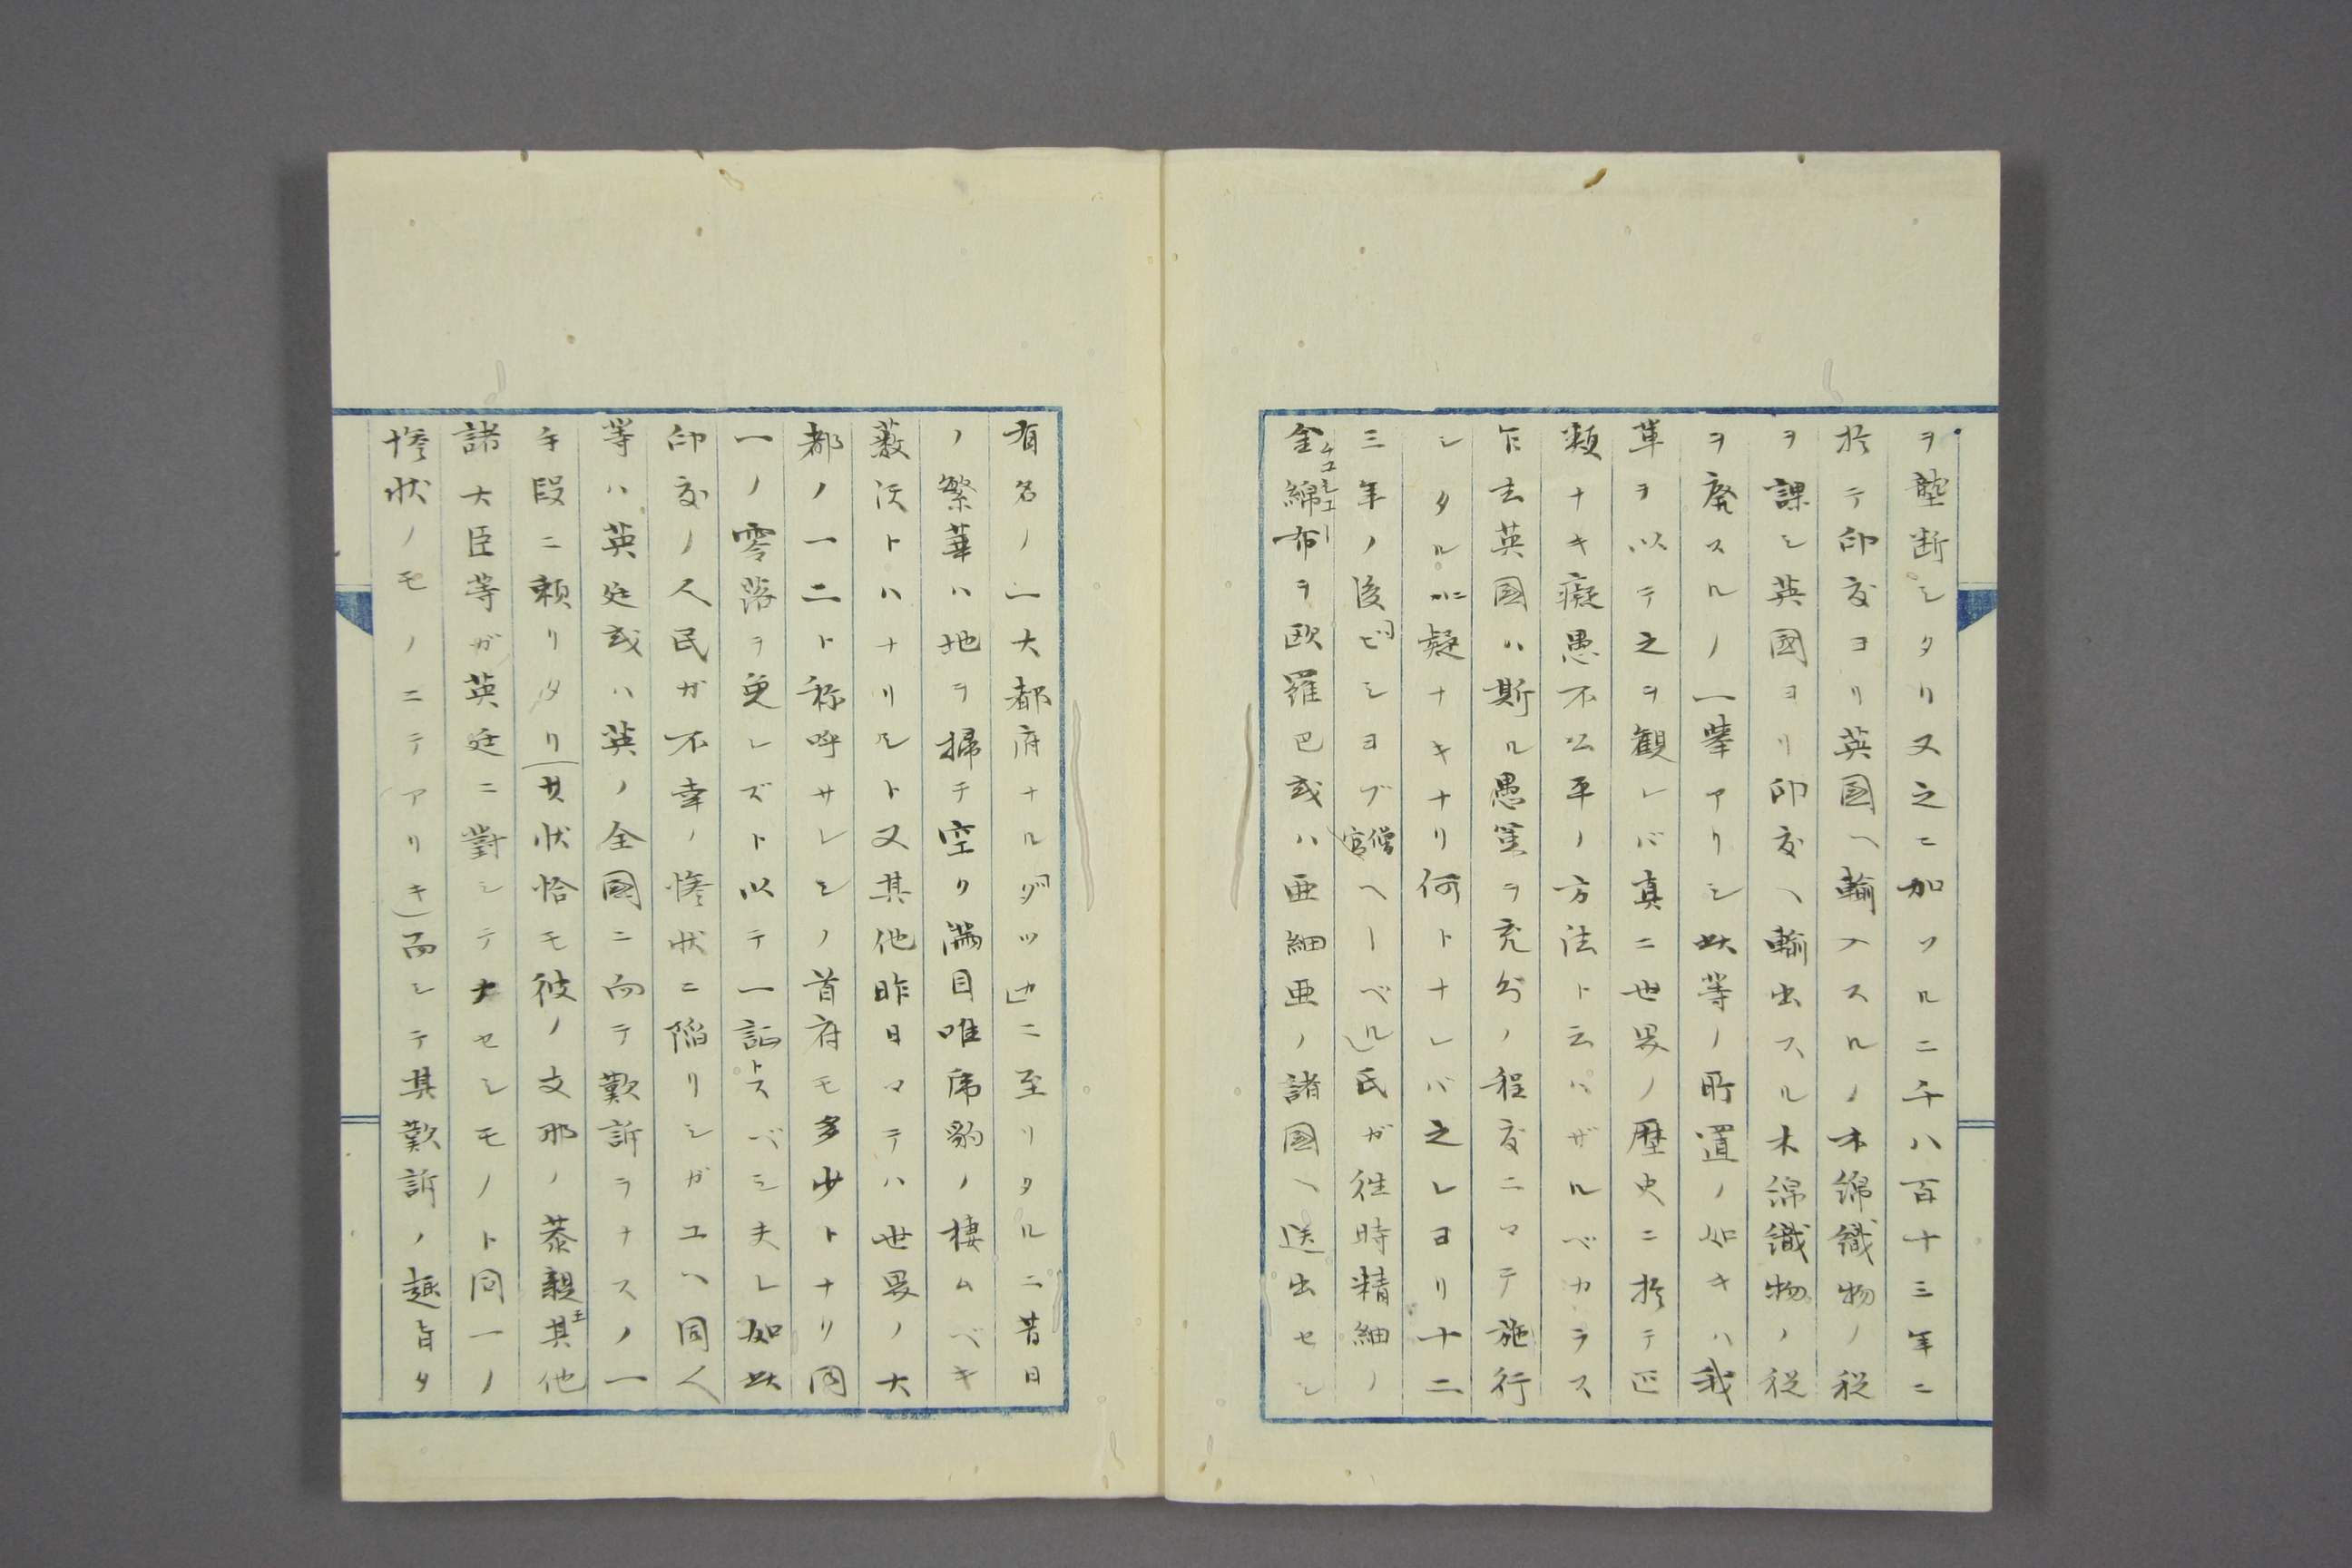 ヲ壟断シタリ又之ニ加フルニ千八百十三年ニ
於テ印度ヨリ英国ヘ輸入スルノ木綿織物ノ税
ヲ課シ英國ヨリ印度ヘ輸出スル木綿織物ノ税
ヲ廃スルノ一挙アリシ此等ノ所置ノ如キハ我
輩ヲ以テ之ヲ観レバ真ニ世界ノ歴史ニ於テ匹
類ナキ癡愚不公平ノ方法ト云ハザルベカラス
乍去英國ハ斯ル愚策ヲ充分ノ程度ニマテ施行
シタルニ疑ナキナリ何トナレバ之レヨリ十二
三年ノ後「ビシヨプ僧官ヘーベル」氏ガ往時精細ノ
金綿布ヲ欧羅巴或ハ亜細亜ノ諸国ヘ送出セシ
有名ノ一大都府ナル「ダツカ」ニ至リタルニ昔日
ノ繁華ハ地ヲ掃テ空ク満目唯乕豹ノ棲ムベキ
薮沢トハナリルト又其他昨日マテハ世界ノ大
都ノ一二ト称呼サレシノ首府モ多少トナリ同
一ノ零落ヲ免レズト以テ一証トスベシ夫レ如此
印度ノ人民ガ不幸ノ惨状ニ陥リシガユヘ同人
等ハ英廷或ハ英ノ全國ニ向テ歎訴ヲナスノ一
手段ニ頼リタリ(其状恰モ彼ノ支那ノ恭親王其他
諸大臣等ガ英廷ニ對シテナセシモノト同一ノ
惨状ノモノニテアリキ)而シテ其歎訴ノ趣旨タ